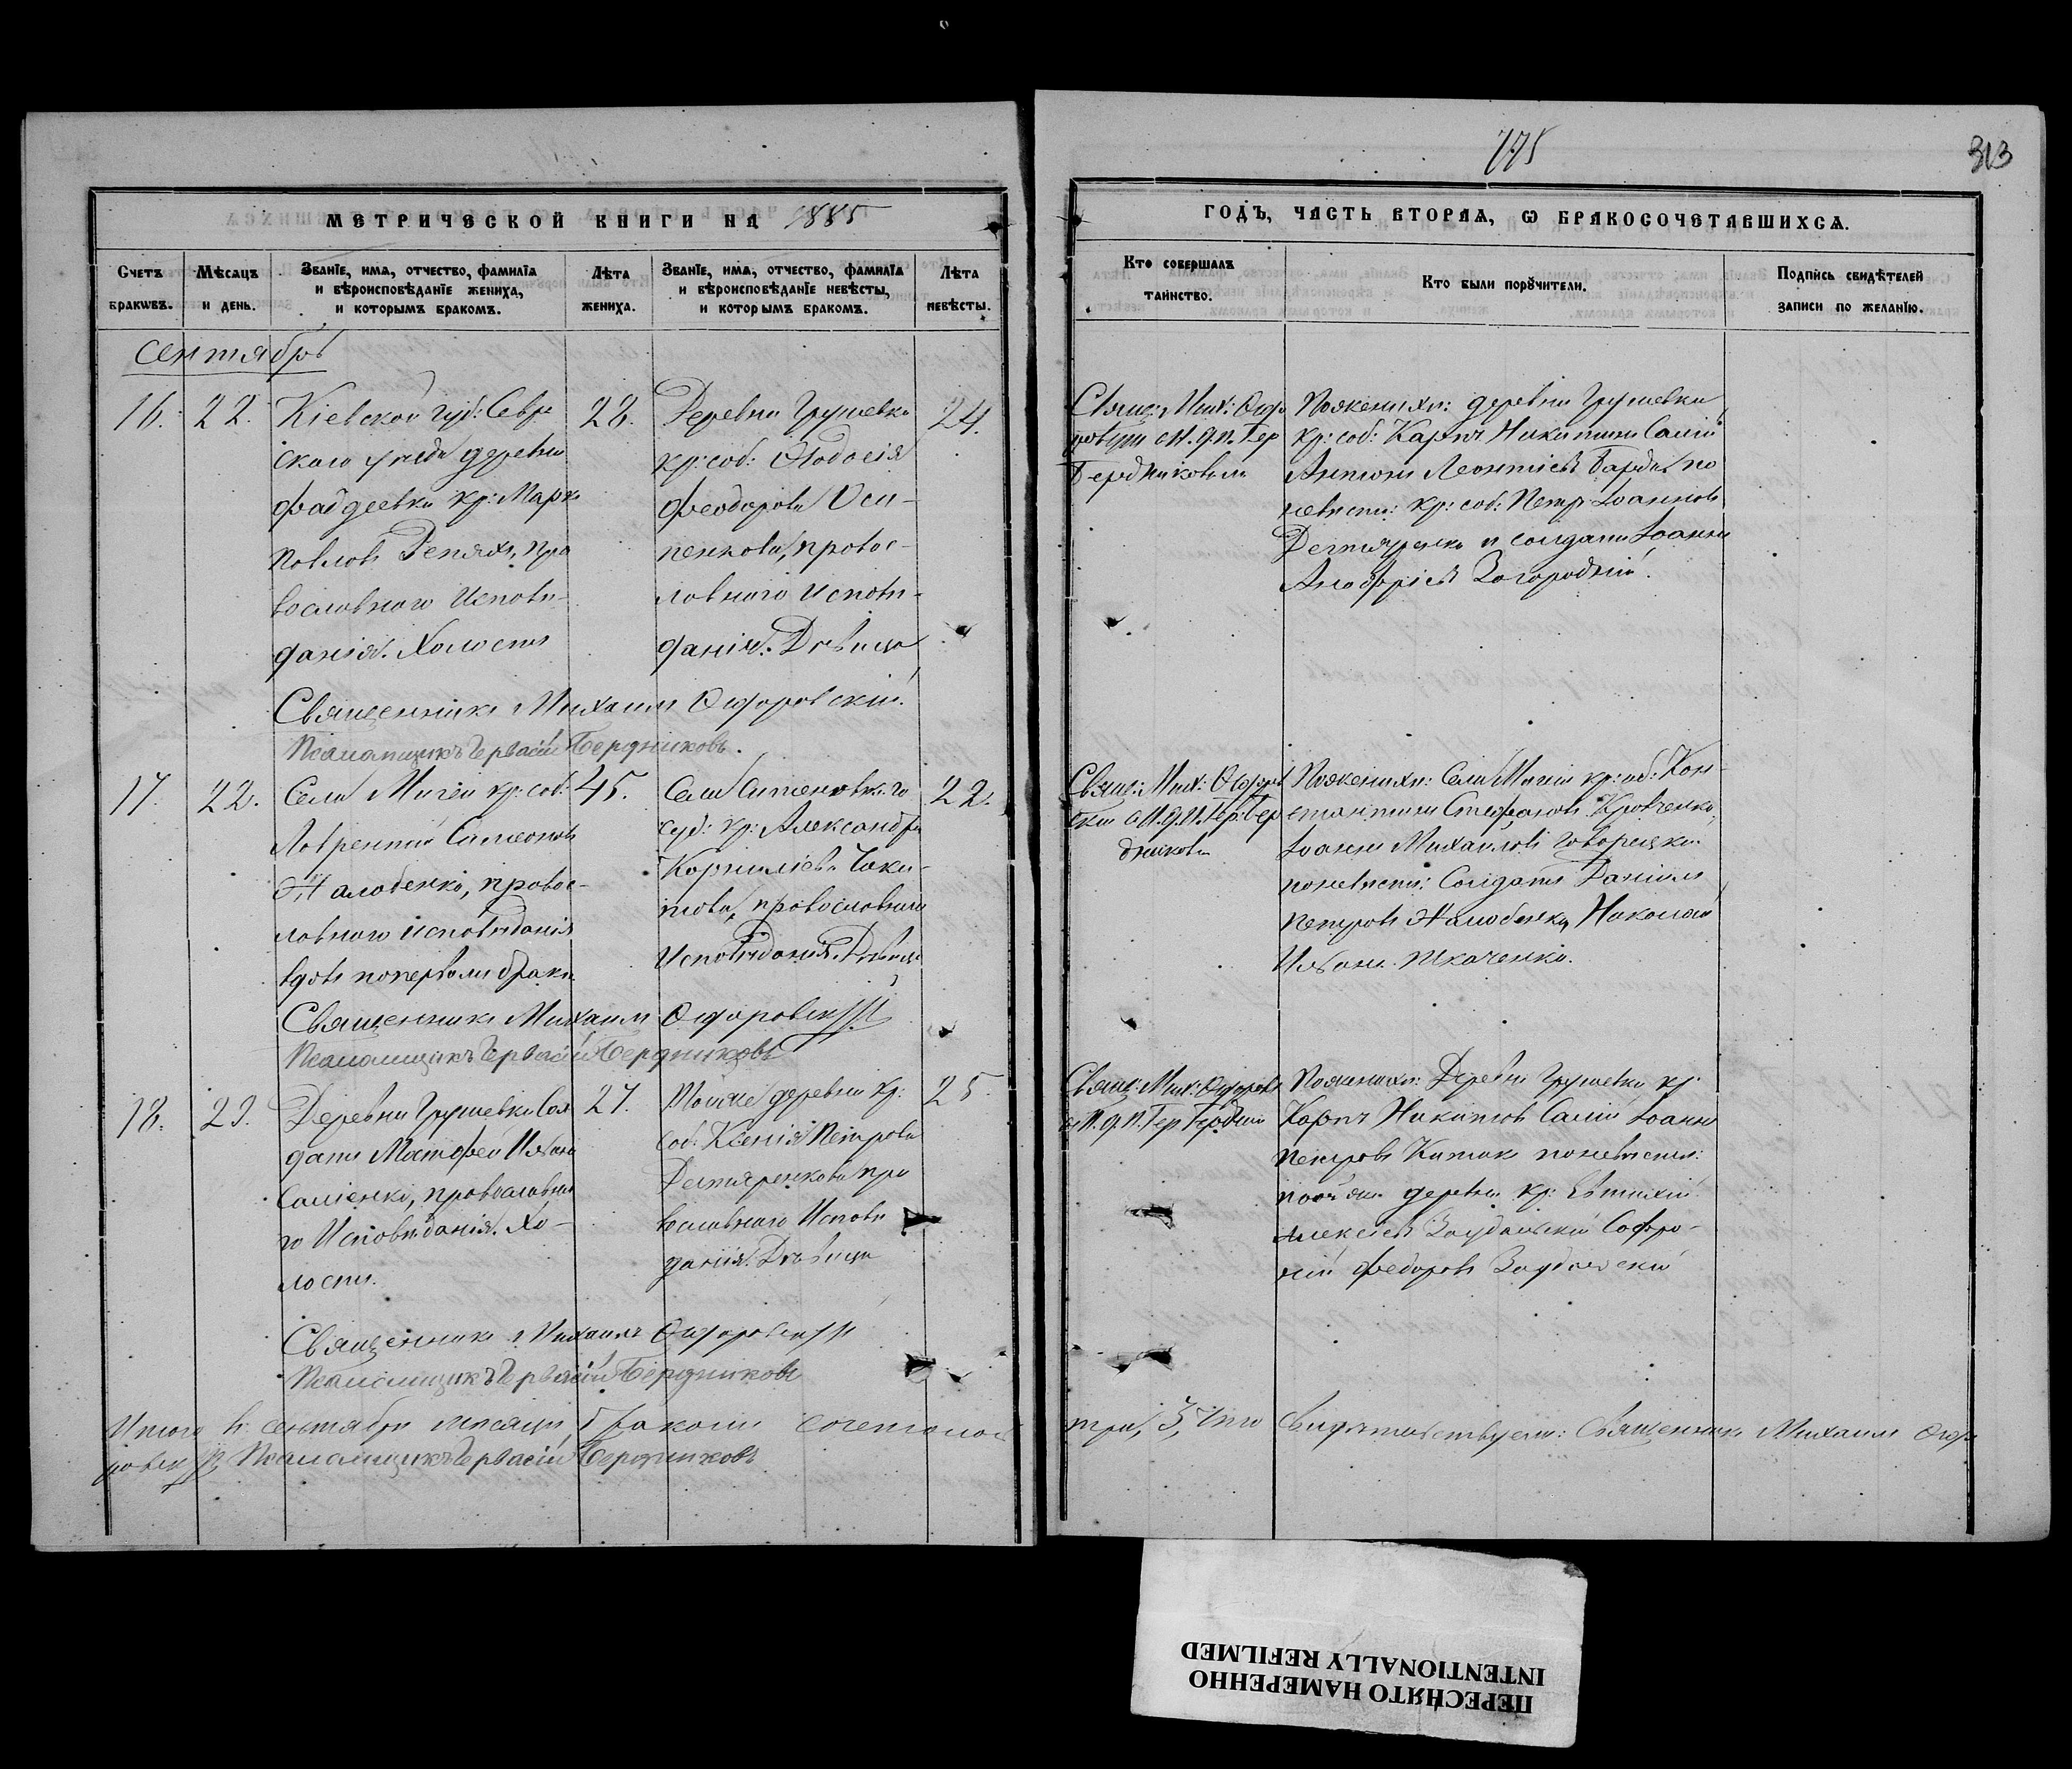 775
313
МЕТРИЧЕСКОЙ КНИГИ НА 1885
ГОДЪ, ЧАСТЬ ВТОРАЯ, Ѡ БРАКОСОЧЕТАВШИХСЯ.
Счетъ браковъ.
Мѣсяцъ и день.
Званіе, имя, отчество, фамилія
и вѣроисповѣданіе жениха,
и которымъ бракомъ.
Лѣта жениха.
Званіе, имя, отчество, фамилія
и вѣроисповѣданіе невѣсты,
и которымъ бракомъ.
Лѣта невѣсты.
Кто совершалъ
таинство.
Кто были поручители.
Подпись свидѣтелей
записи по желанію.
Сентябрь
16.
22.
Кіевской губ:
скаго уезда деревни
Фаддеевки кр: Марко
Павловъ Репяхъ, пра
вославнаго исповѣ-
данія. Холостъ
28.
Деревни Грушевки
кр: соб: Ѳеодосія
Феодорова Оси-
пенкова, правос-
лавнаго исповѣ-
данія. Дѣвица
24
Свящ: Мих:
Бердниковымъ
По женихѣ: деревни Грушевки
кр: соб: Карпъ Никитинъ Салій
Антонъ Леонтіевъ по
невѣстѣ: кр: соб: Петръ Іоанновъ
Дегтяренко и солдатъ Іоаннъ
Загородній.
Священникъ Михаилъ
Псаломщикъ Гервасій Бердниковъ.
17.
22.
Села Мигеи кр: соб:
Лаврентій Симеоновъ
Жалобенко, правос-
лавнаго исповѣданія
вдовъ по первомъ бракѣ
45.
Села
суд: кр: Александра
Корниліева
православнаго
исповѣданія. Дѣвица
22.
Свящ: Мих:
дниковъ
По женихѣ: Села Мигеи кр: соб: Кон-
стантинъ Стефановъ Кравченко,
Іоаннъ Михаиловъ
по невѣстѣ: Солдатъ Даніилъ
Петровъ Жалобенко, Николай
Ильинъ Ткаченко.
Священникъ Михаилъ
Псаломщикъ Гервасій Бердниковъ
18.
Деревни Грушевки Сол
датъ Матфей Ильинъ
Саліенко, православна
го Исповѣданія. Хо-
лостъ.
27.
Той же деревни кр:
соб: Ксенія Петрова
Дегтяренкова пра
вославнаго Исповѣ
данія. Дѣвица
25.
Свящ: Мих:
По женихѣ: Деревни Грушевки кр:
Карпъ Никитовъ Салій Іоаннъ
Петровъ по невѣстѣ:
той же деревни кр: Евтихій
Алексіевъ Софро-
ній Федоровъ
Священникъ Михаилъ
Псаломщикъ Гервасій Бердниковъ
Итого въ сентябрѣ мѣсяцѣ бракомъ сочеталось три, 3, что свидѣтельствуемъ: Священникъ Михаилъ
Псаломщикъ Гервасій Бердниковъ
ПЕРЕСНЯТО НАМЕРЕННО
INTENTIONALLY REFILMED